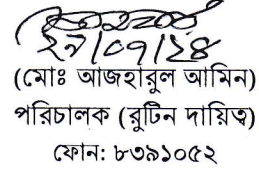 (মোঃ আজহারুল আমিন)
পরিচালক (রুটিন দায়িত্ব)
ফোন: ৮৩৯১০৫২